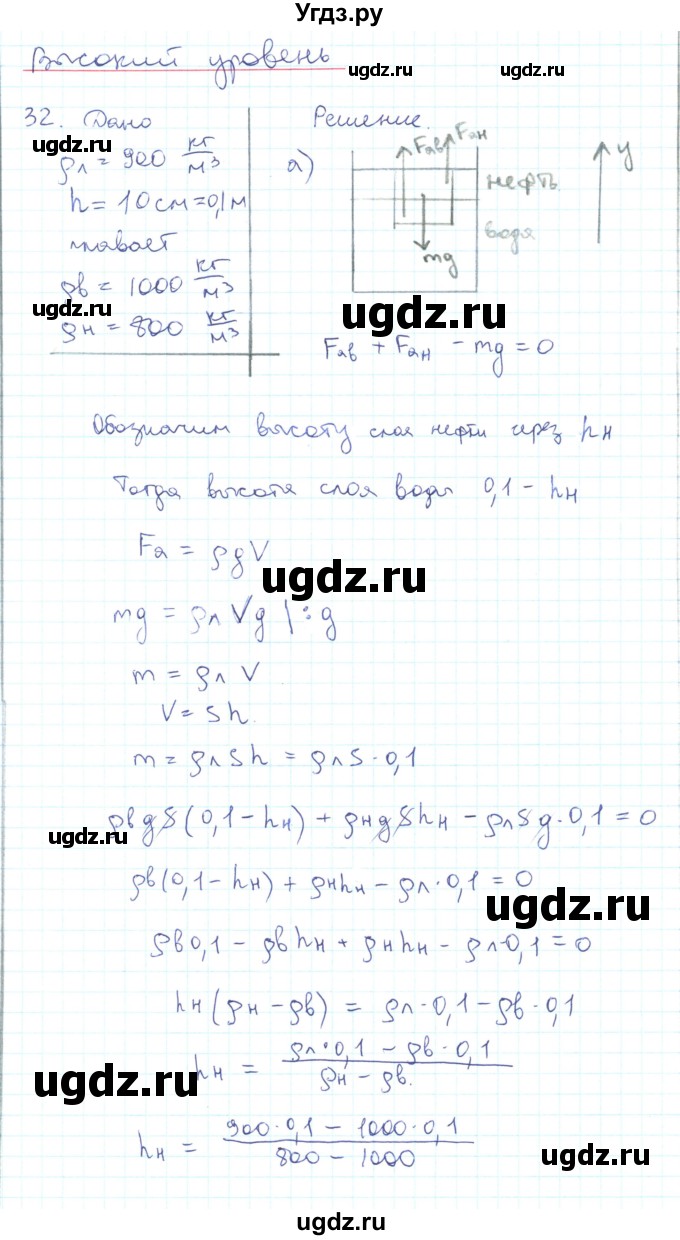 Угдз.ру
Высокий уровень
ugdz.ru ugdz.ru
32. Дано Решение.
ugdz.ru
ρл = 900 кг/м³
h = 10 см = 0,1 м
плавает
ρв = 1000 кг/м³
ugdz.ru
ρн = 800 кг/м³
а) Fав Fан y
нефть
вода
mg
ugdz.ru
Fав + Fан − mg = 0
Обозначим высоту слоя нефти через hн
Тогда высота слоя воды 0,1 − hн
Fа = ρgV
ugdz.ru
mg = ρл Vg | : g
m = ρл V
ugdz.ru
V = Sh.
m = ρл Sh = ρл S · 0,1
ρв g S (0,1 − hн) + ρн g S hн − ρл S g · 0,1 = 0
ugdz.ru
ρв (0,1 − hн) + ρн hн − ρл · 0,1 = 0
ugdz.ru
ρв 0,1 − ρв hн + ρн hн − ρл · 0,1 = 0
ugdz.ru
hн (ρн − ρв) = ρл · 0,1 − ρв · 0,1
hн = (ρл · 0,1 − ρв · 0,1) / (ρн − ρв)
ugdz.ru ugdz.ru
hн = (900 · 0,1 − 1000 · 0,1) / (800 − 1000)
ugdz.ru
ugdz.ru